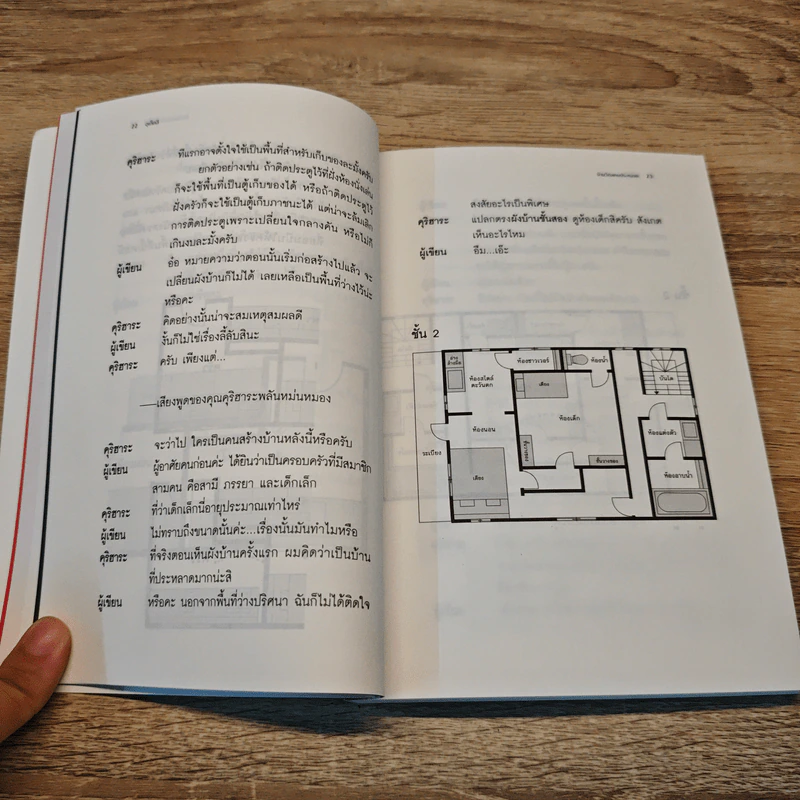 22
คุริฮาระ ทีแรกอาจตั้งใจใช้เป็นพื้นที่สำหรับเก็บของละมั้งครับ
ยกตัวอย่างเช่น ถ้าติดประตูไว้ที่ฝั่งห้องนั่งเล่น
ก็จะใช้พื้นที่เป็นตู้เก็บของได้ หรือถ้าติดประตูไว้
ฝั่งครัวก็จะใช้เป็นตู้เก็บภาชนะได้ แต่น่าจะล้มเลิก
การติดประตูเพราะเปลี่ยนใจกลางคัน หรือไม่ก็
เกินงบละมั้งครับ
ผู้เขียน อ๋อ หมายความว่าตอนนั้นเริ่มก่อสร้างไปแล้ว จะ
เปลี่ยนผังบ้านก็ไม่ได้ เลยเหลือเป็นพื้นที่ว่างไว้น่ะ
หรือคะ
คุริฮาระ คิดอย่างนั้นน่าจะสมเหตุสมผลดี
ผู้เขียน งั้นก็ไม่ใช่เรื่องลี้ลับสินะ
คุริฮาระ ครับ เพียงแต่...
—เสียงพูดของคุณคุริฮาระพลันหม่นหมอง
คุริฮาระ จะว่าไป ใครเป็นคนสร้างบ้านหลังนี้หรือครับ
ผู้เขียน ผู้อาศัยคนก่อนค่ะ ได้ยินว่าเป็นครอบครัวที่มีสมาชิก
สามคน คือสามี ภรรยา และเด็กเล็ก
คุริฮาระ ที่ว่าเด็กเล็กนี่อายุประมาณเท่าไหร่
ผู้เขียน ไม่ทราบถึงขนาดนั้นค่ะ...เรื่องนั้นมันทำไมหรือ
คุริฮาระ ที่จริงตอนเห็นผังบ้านครั้งแรก ผมคิดว่าเป็นบ้าน
ที่ประหลาดมากน่ะสิ
ผู้เขียน หรือคะ นอกจากพื้นที่ว่างปริศนา ฉันก็ไม่ได้ติดใจ
สงสัยอะไรเป็นพิเศษ
คุริฮาระ แปลกตรงผังบ้านชั้นสอง ดูห้องเด็กสิครับ สังเกต
เห็นอะไรไหม
ผู้เขียน อืม...เอ๊ะ
ชั้น 2
อ่าง
ล้างมือ
ห้องสไตล์
ตะวันตก
ห้องชาวเวอร์
ห้องน้ำ
บันได
เตียง
ห้องเด็ก
ห้องนอน
ห้องแต่งตัว
ระเบียง
ชั้นวางของ
ห้องอาบน้ำ
เตียง